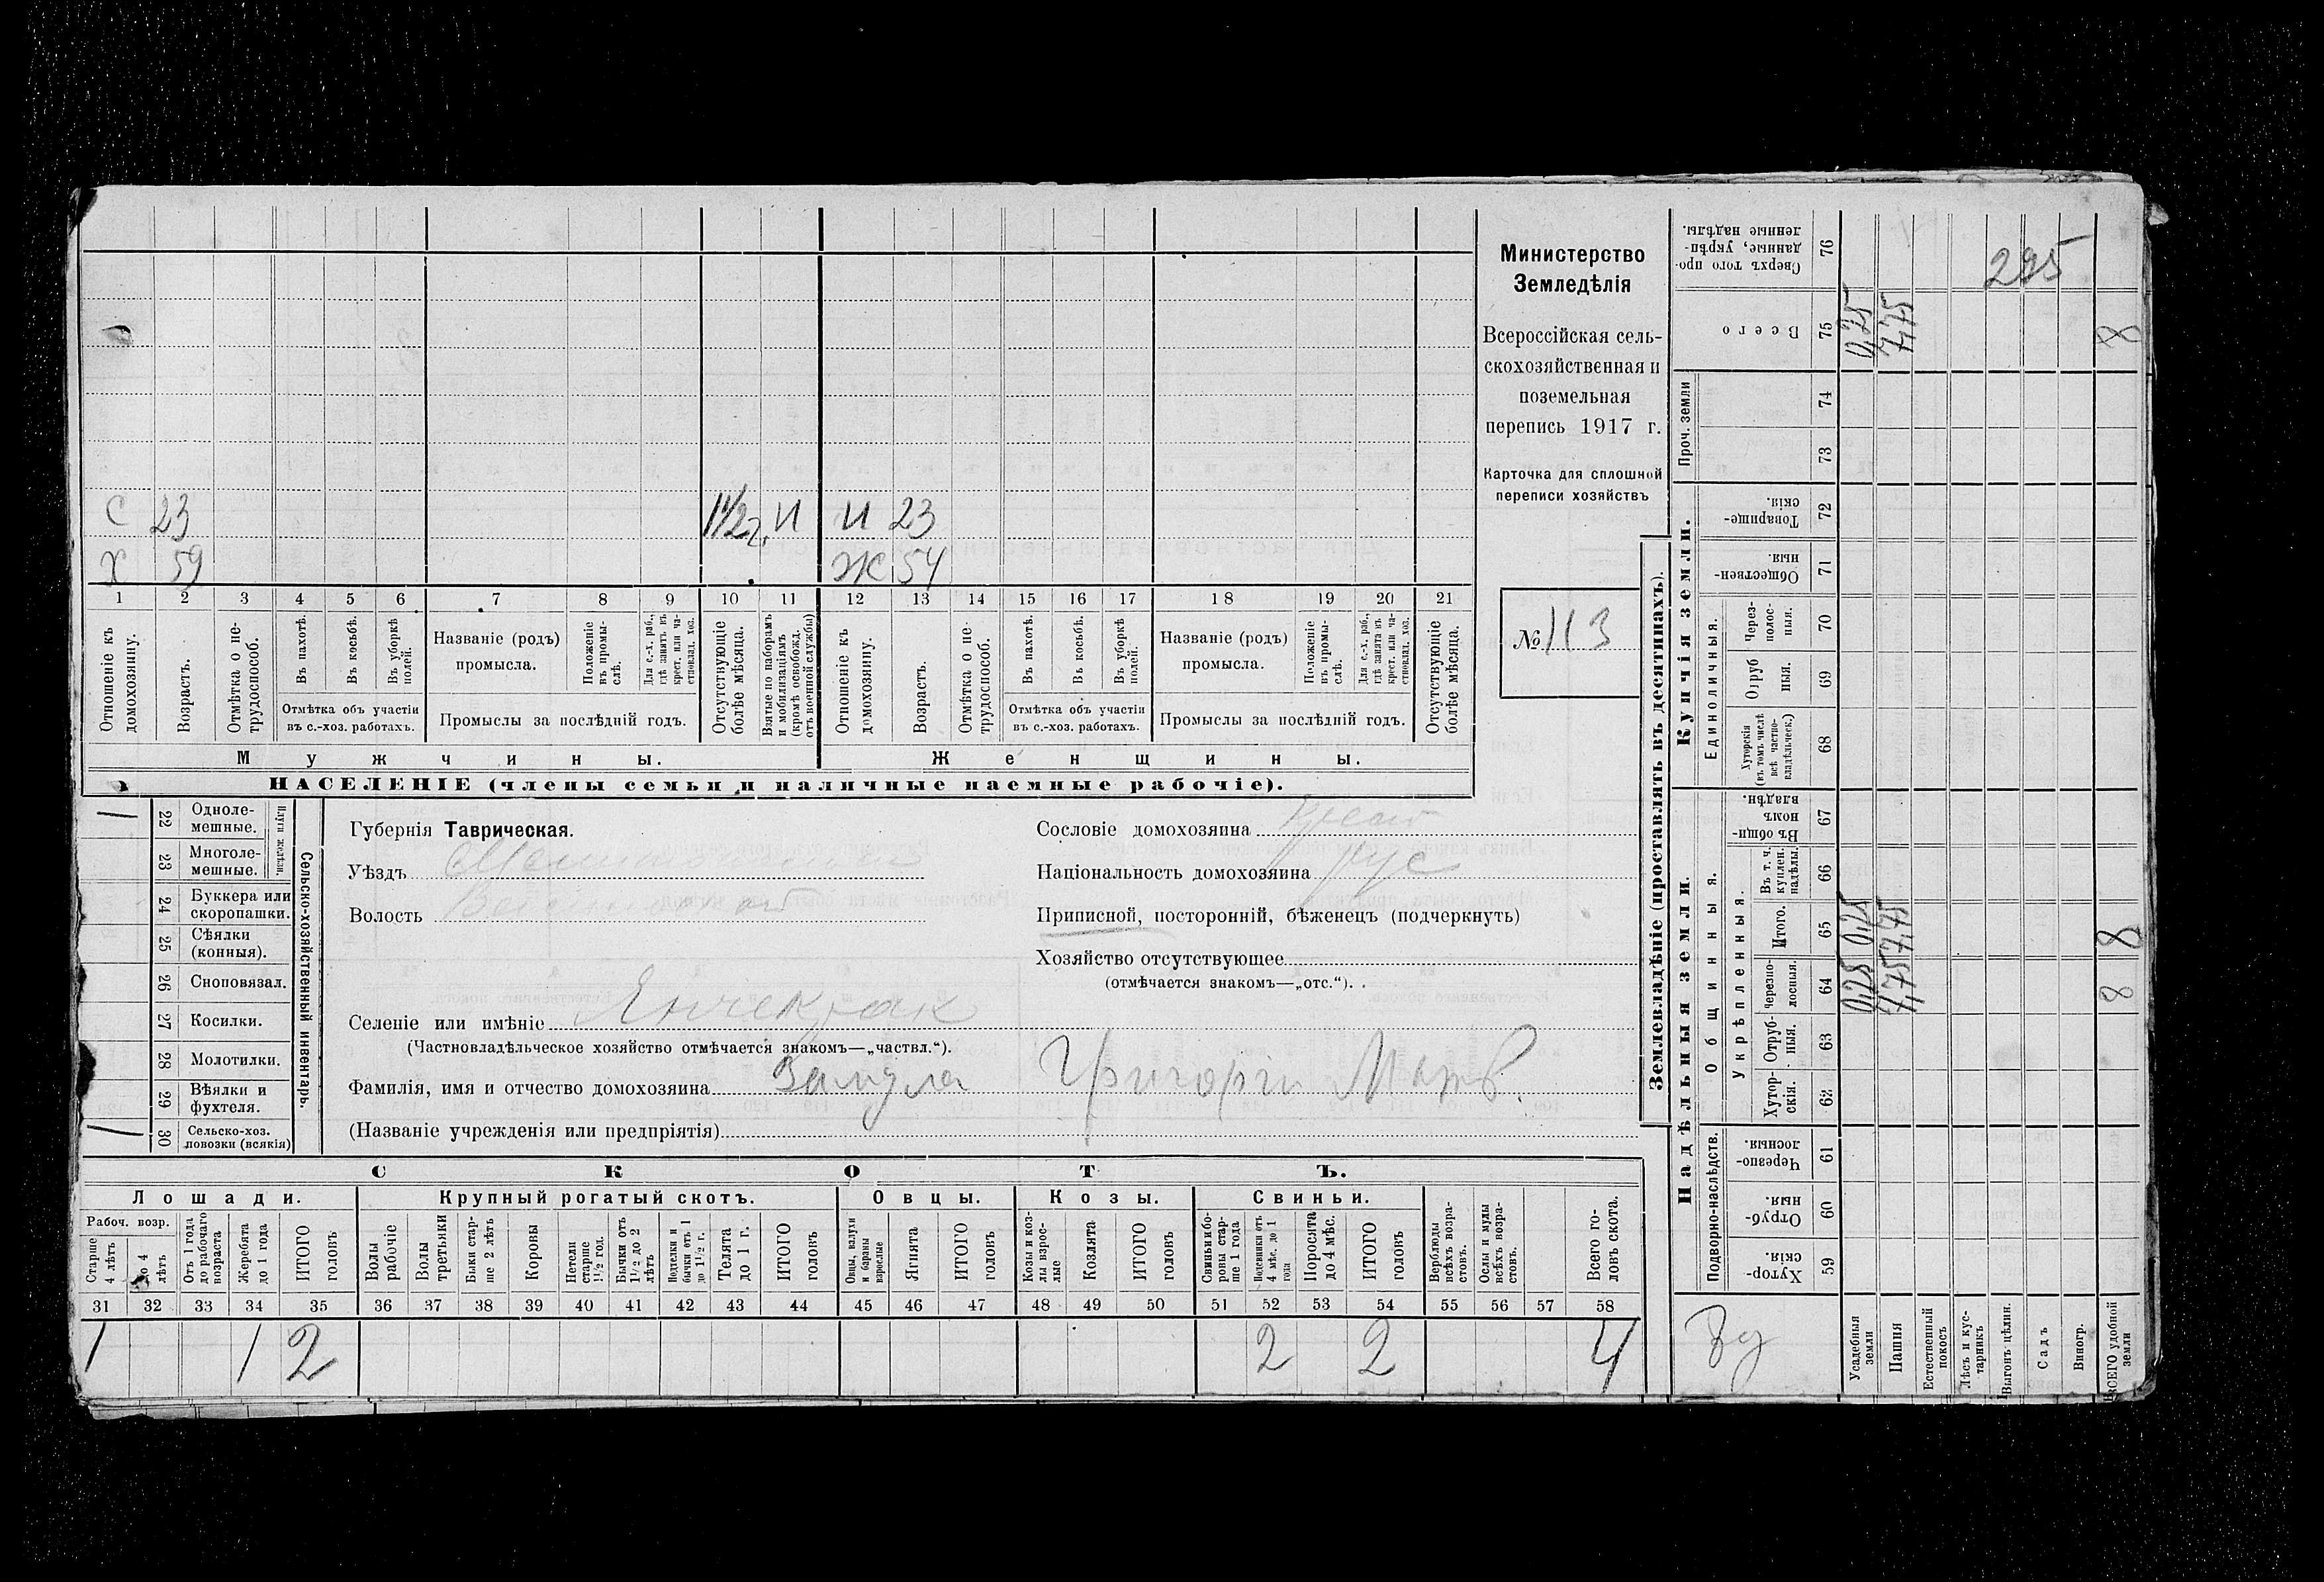 С 23 1½ г. И И 23
Х 59 Ж 54
1 2 3 4 5 6 7 8 9 10 11 12 13 14 15 16 17 18 19 20 21
Отношеніе къ домохозяину.
Возрастъ.
Отмѣтка о не-трудоспособ.
Въ пахотѣ.
Въ косьбѣ.
Въ уборкѣ полей.
Отмѣтка объ участіи
въ с.-хоз. работахъ.
Названіе (родъ)
промысла.
Положеніе въ промы-слѣ.
Для с.-х. раб., гдѣ занятъ въ крест. или ча-стновлад. хоз.
Промыслы за послѣдній годъ.
Отсутствующіе болѣе мѣсяца.
Взятые по наборамъ и мобилизаціямъ (кромѣ освобожд. отъ военной службы)
Отношеніе къ домохозяину.
Возрастъ.
Отмѣтка о не-трудоспособ.
Въ пахотѣ.
Въ косьбѣ.
Въ уборкѣ полей.
Отмѣтка объ участіи
въ с.-хоз. работахъ.
Названіе (родъ)
промысла.
Положеніе въ промы-слѣ.
Для с.-х. раб., гдѣ занята въ крест. или ча-стновлад. хоз.
Промыслы за послѣдній годъ.
Отсутствующіе болѣе мѣсяца.
Мужчины. Женщины.
НАСЕЛЕНІЕ (члены семьи и наличные наемные рабочіе).
Министерство
Земледѣлія
Всероссійская сель-
скохозяйственная и
поземельная
перепись 1917 г.
Карточка для сплошной
переписи хозяйствъ
№ 113
Сельско-хозяйственный инвентарь.
Плуги желѣзн.
22 Одноле-мешные. 1
23 Многоле-мешные.
24 Буккера или скоропашки.
25 Сѣялки (конныя).
26 Сноповязал.
27 Косилки.
28 Молотилки.
29 Вѣялки и фухтеля.
30 Сельско-хоз. повозки (всякія) 1
Губернія Таврическая.
Уѣздъ
Волость
Селеніе или имѣніе Янчекрак
(Частновладѣльческое хозяйство отмѣчается знакомъ—„частвл.“).
Фамилія, имя и отчество домохозяина Замула Григорги Матв.
(Названіе учрежденія или предпріятія)
Сословіе домохозяина
Національность домохозяина рус
Приписной, посторонній, бѣженецъ (подчеркнуть)
Хозяйство отсутствующее
(отмѣчается знакомъ—„отс.“).
СКОТЪ.
Лошади. Крупный рогатый скотъ. Овцы. Козы. Свиньи.
Рабоч. возр.
Старше 4 лѣтъ
до 4 лѣтъ
Отъ 1 года до рабочаго возраста
Жеребята до 1 года
ИТОГО головъ
Волы рабочіе
Волы третьяки
Быки стар-ше 2 лѣтъ
Коровы
Нетели старше 1½ год.
Бычки отъ 1½ до 2 лѣтъ
Подтелки и бычки отъ 1 до 1½ г.
Телята до 1 г.
ИТОГО головъ
Овцы, валухи и бараны взрослые
Ягнята
ИТОГО головъ
Козы и коз-лы взрос-лые
Козлята
ИТОГО головъ
Свиньи бо-ровы стар-ше 1 года
Подсвинки отъ 4 мѣс. до 1 года
Поросята до 4 мѣс.
ИТОГО головъ
Верблюды всѣхъ возра-стовъ.
Ослы и мулы всѣхъ возра-стовъ.
Всего го-ловъ скота.
31 32 33 34 35 36 37 38 39 40 41 42 43 44 45 46 47 48 49 50 51 52 53 54 55 56 57 58
1 1 2 2 2 4
Землевладѣніе (проставлять въ десятинахъ).
Надѣльныя земли. Купчія земли. Проч. земли
Подворно-наслѣдств.
Общинныя.
Укрѣпленныя.
Единоличныя.
Хутор-скія. 59
Отруб-ныя. 60
Черезпо-лосныя. 61
Хутор-скія. 62
Отруб-ныя. 63
Черезпо-лосныя. 64
Итого. 65
Въ т. ч. куплен. надѣлы. 66
Въ общи-номъ владѣн. 67
Хуторскія (въ томъ числѣ всѣ частно-владѣльческ.) 68
Отруб ныя. 69
Через-полос-ныя. 70
Обществен-ныя. 71
Товарище-скія. 72
73
74
Всего 75
Сверхъ того про-данные, укрѣп-ленные надѣлы. 76
Усадебныя земли 0,25 0,25 0,25
Пашня 7,75 7,75 7,75
Естественный покосъ
Лѣсъ и кус-тарникъ
Выгонъ цѣлин.
Садъ
Виногр.
ВСЕГО удобной земли 8 8 8